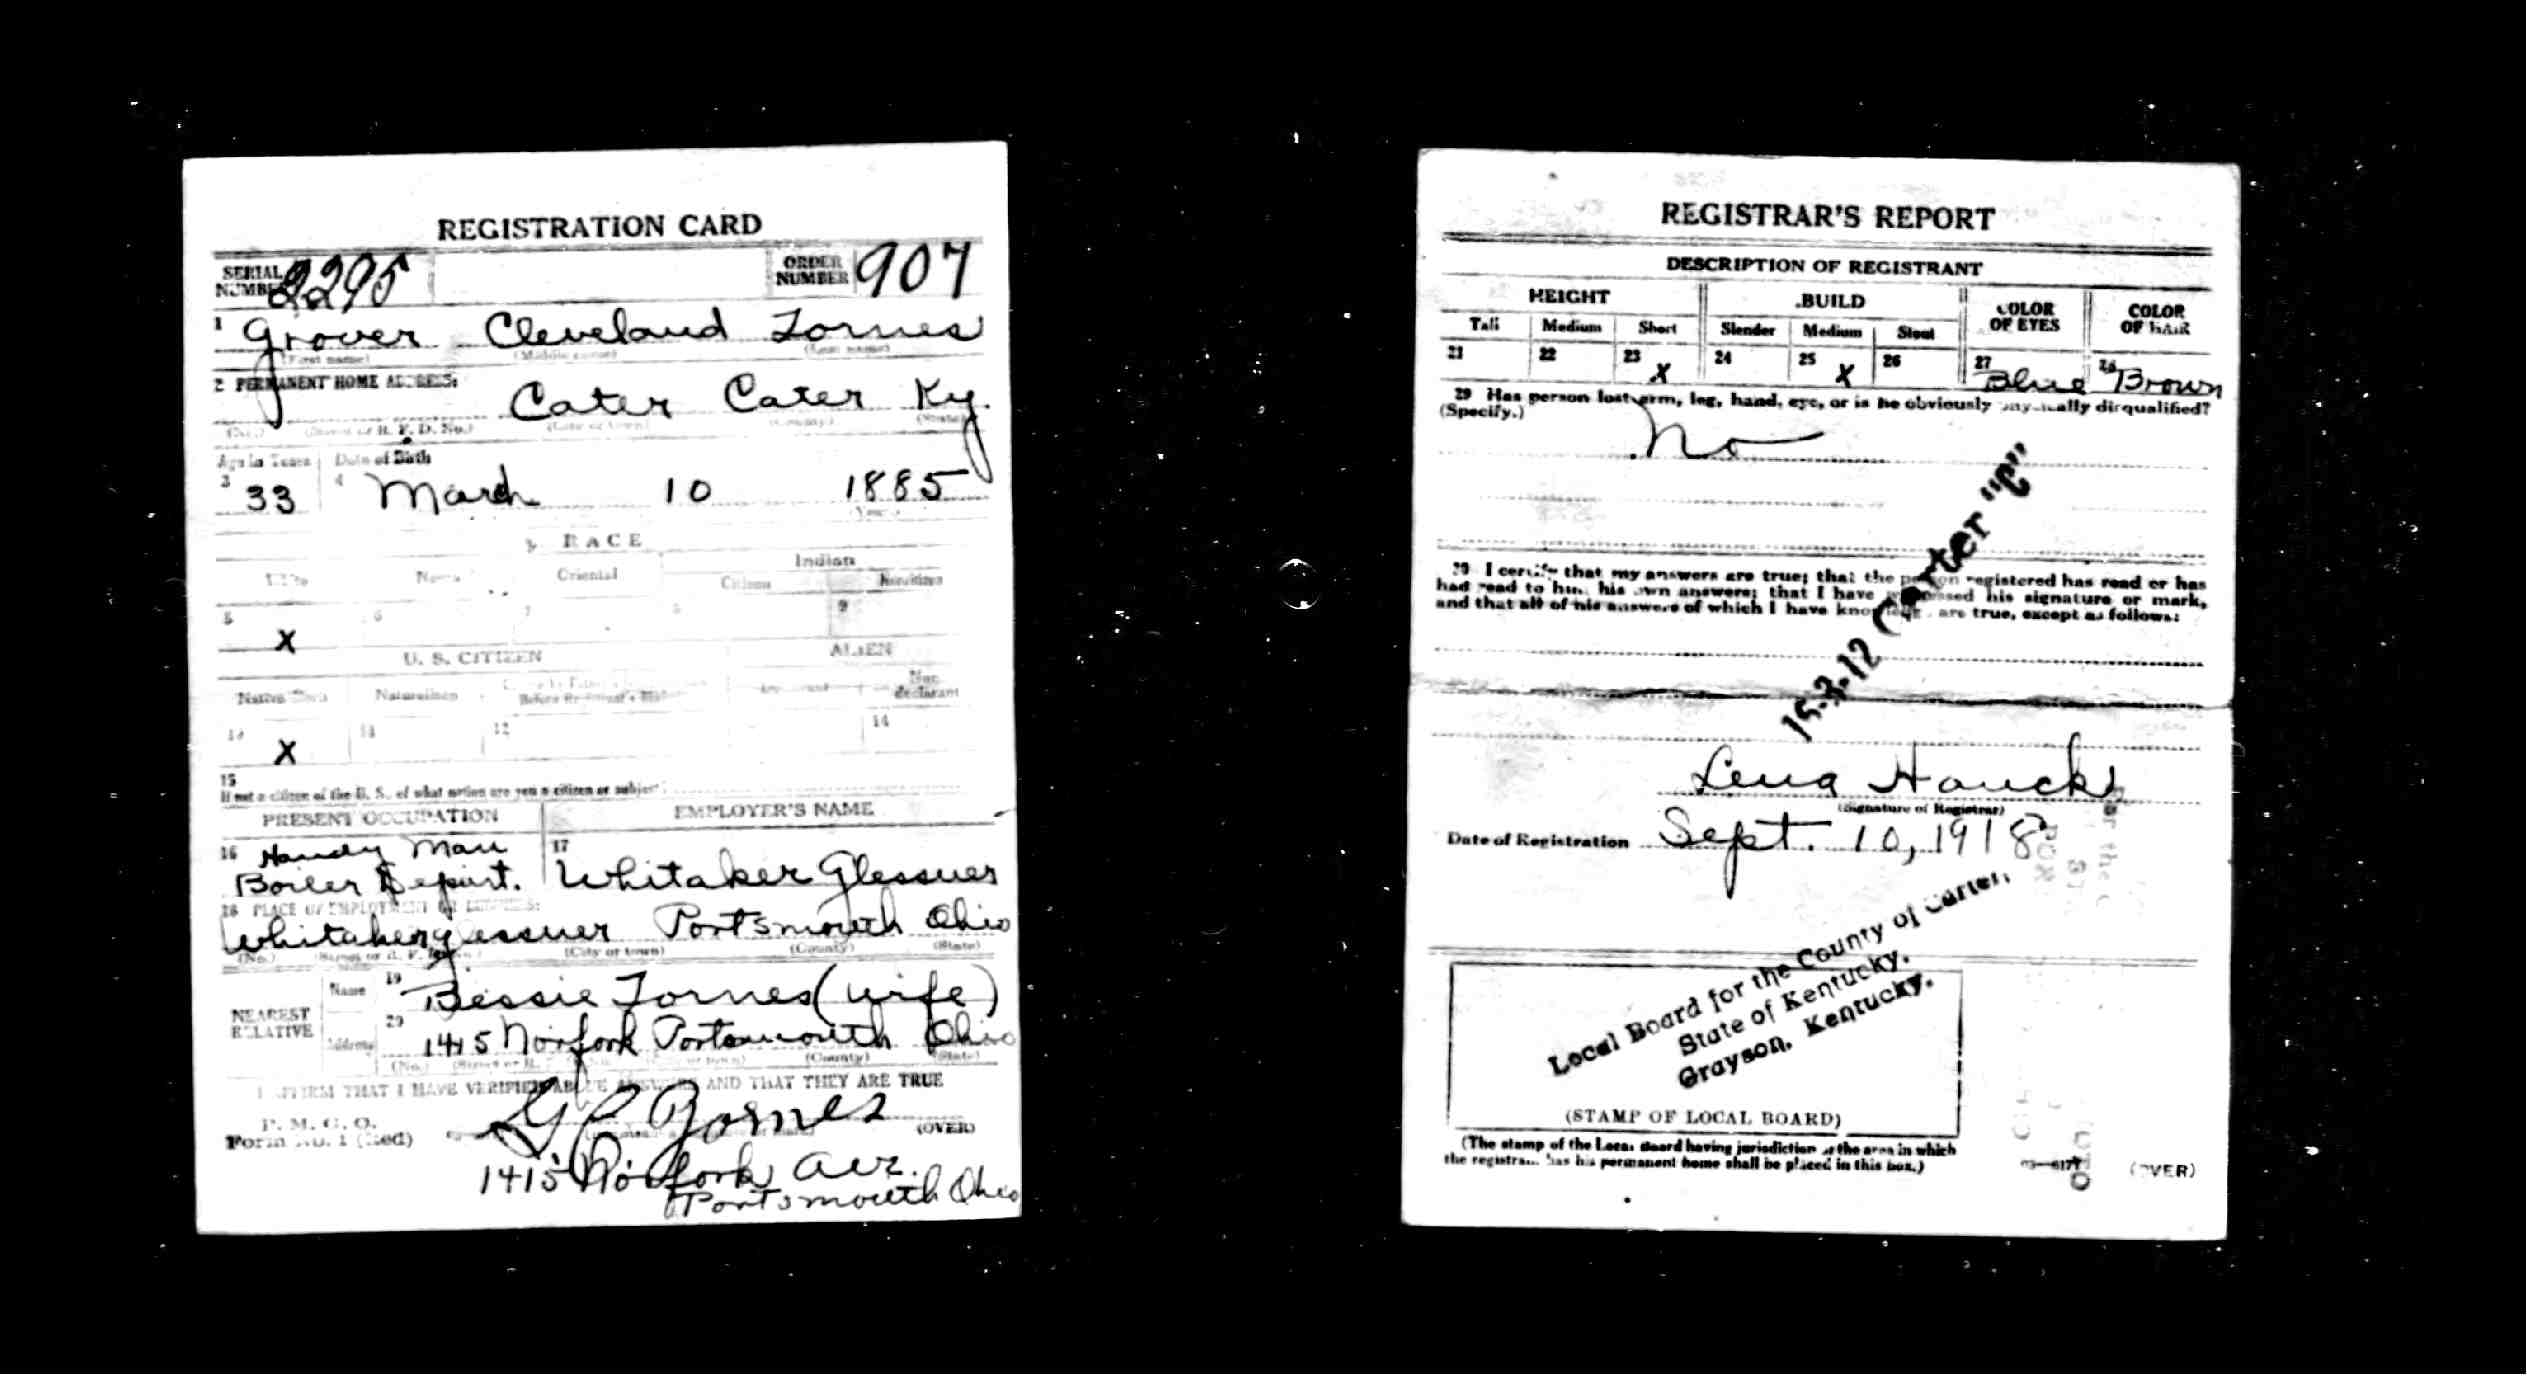 REGISTRATION CARD
SERIAL NUMBER 2295 ORDER NUMBER 907
1 Grover Cleveland Fornes
(First name) (Middle name) (Last name)
2 PERMANENT HOME ADDRESS:
Cater Cater Ky.
(No.) (Street or R. F. D. No.) (City or town) (County) (State)
Age in Years Date of Birth
3 33 4 March 10 1885
Year
RACE
Indian
White Negro Oriental Citizen Noncitizen
5 X 6 7 8 9
U. S. CITIZEN ALIEN
Native Born Naturalized Before Registrant's Non-declarant
10 X 11 12 14
15
If not a citizen of the U. S., of what nation are you a citizen or subject?
PRESENT OCCUPATION EMPLOYER'S NAME
16 Handy Man 17
Boiler Depart. Whitaker Glessner
18 PLACE OF EMPLOYMENT OR BUSINESS:
Whitaker Glessner Portsmouth Ohio
(No.) (Street or R. F. D. No.) (City or town) (County) (State)
NEAREST RELATIVE Name 19 Bessie Fornes (wife)
Address 20 1415 Norfork Portsmouth Ohio
(No.) (County) (State)
I AFFIRM THAT I HAVE VERIFIED ABOVE ANSWERS AND THAT THEY ARE TRUE
P. M. G. O.
Form No. 1 (Red) G C Fornes (OVER)
1415 Norfork ave.
Portsmouth Ohio
REGISTRAR'S REPORT
DESCRIPTION OF REGISTRANT
HEIGHT BUILD COLOR OF EYES COLOR OF HAIR
Tall Medium Short Slender Medium Stout
21 22 23 X 24 25 X 26 27 Blue 28 Brown
29 Has person lost arm, leg, hand, eye, or is he obviously physically disqualified?
(Specify.)
No
30 I certify that my answers are true; that the person registered has read or has
had read to him his own answers; that I have witnessed his signature or mark,
and that all of his answers of which I have knowledge are true, except as follows:
16-3-12 Carter "C"
Lena Houck
(Signature of Registrar)
Date of Registration Sept. 10, 1918
Local Board for the County of Carter,
State of Kentucky,
Grayson, Kentucky.
(STAMP OF LOCAL BOARD)
(The stamp of the Local Board having jurisdiction of the area in which
the registrant has his permanent home shall be placed in this box.)
(OVER)